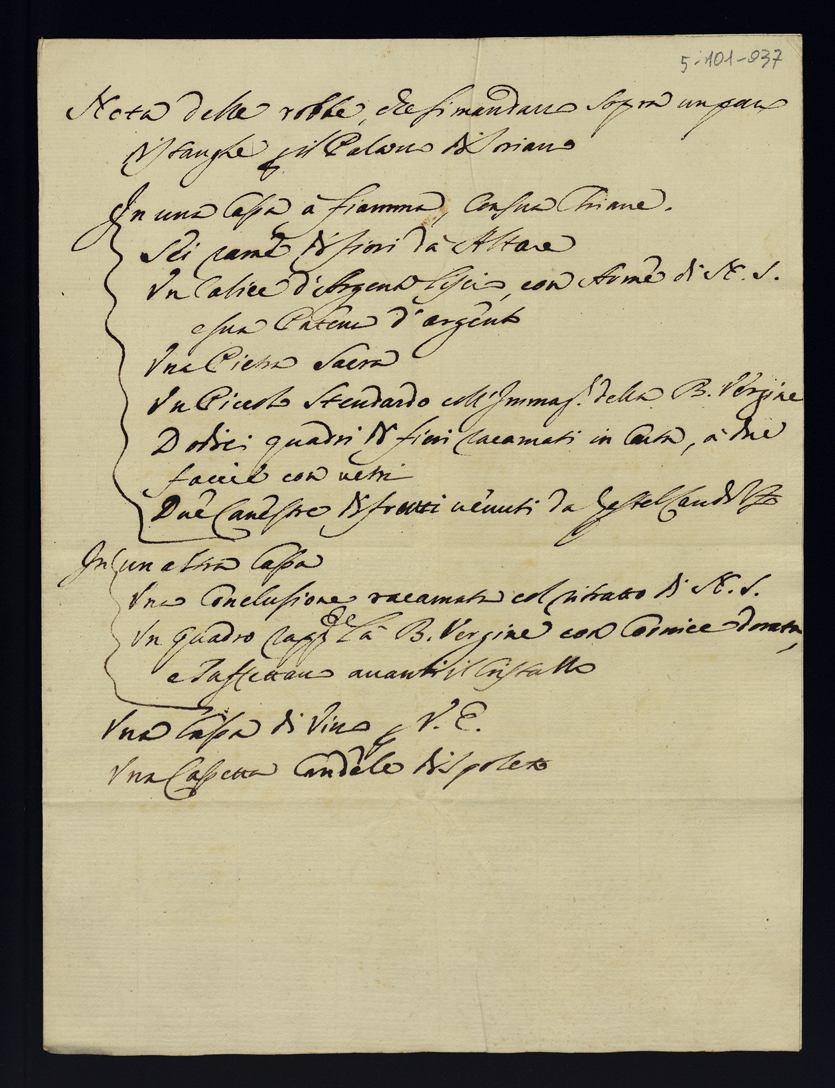 5-101-037
Nota delle robbe, che si mandano sopra un paro
di stanghe p il Palazzo di Soriano
In una Cassa à fiamma, con sua Chiave.
Sei rami di fiori dà Altare
Un Calice d'Argento liscio, con Arme di N. S.
e sua Patena d'argento
Una Pietra Sacra
Un Piccolo Stendardo coll'Immag.e della B. Vergine
Dodici quadri di fiori racamati in Carta, à due
faccie con vetri
Due Canestre di frutti venuti da Castel Gandolfo
In un altra Cassa
Una Conclusione racamata col ritratto di N. S.
Un quadro rapp.te La B. Vergine con Cornice dorata,
e Taffettano avanti il Cristallo
Una Cassa di Vino p V. E.
Una Cassetta Candele di Spoleto